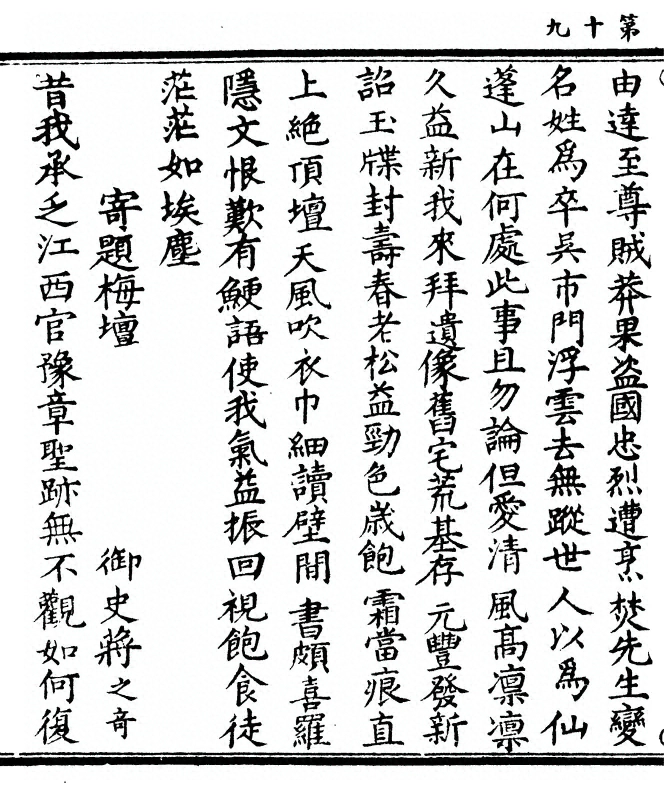 第十九
由達至尊賊莽果盗國忠烈遭烹焚先生變
名姓為卒吳市門浮雲去無蹤世人以為仙
蓬山在何處此事且勿論但愛清風髙凛凛
久益新我來拜遺像舊宅荒基存元豐發新
詔玉牒封壽春老松益勁色歳飽霜當痕直
上絶頂壇天風吹衣巾細讀壁間書頗喜羅
隱文恨歎有鯁語使我氣益振回視飽食徒
茫茫如埃塵
寄題梅壇 御史蔣之竒
昔我承乏江西官豫章聖跡無不觀如何復